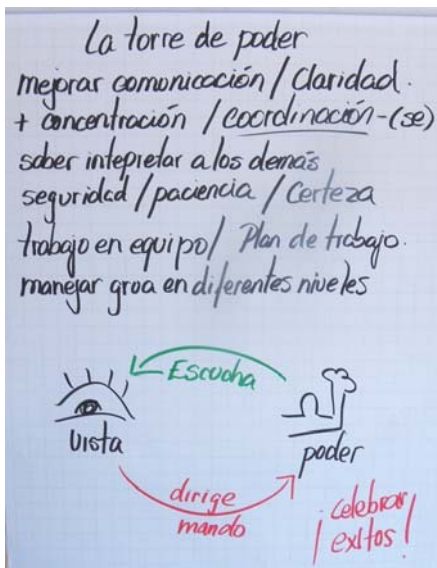 La torre de poder
mejorar comunicación / Claridad.
+ concentración / coordinación-(se)
saber intepretar a los demás
seguridad / paciencia / Certeza
trabajo en equipo / Plan de trabajo.
manejar groa en diferentes niveles
Escucha
vista
poder
dirige
mando
¡celebrar
éxitos!